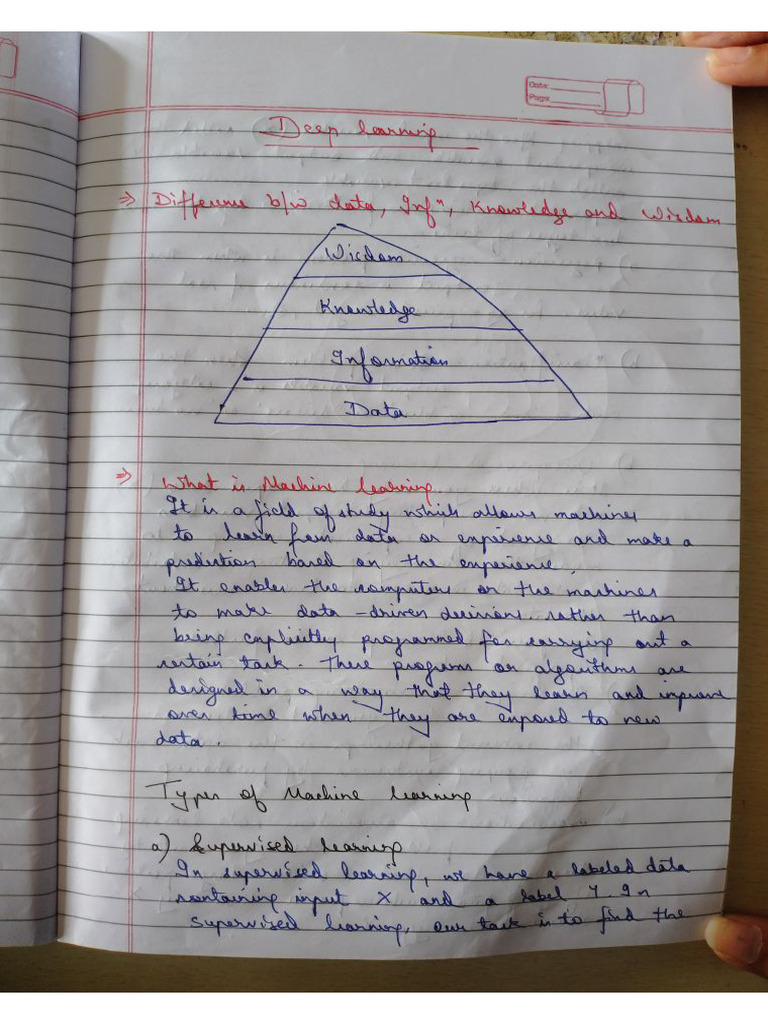 Date:
Page:
Deep learning
⇒ Difference b/w data, Infⁿ, Knowledge and Wisdom
Wisdom
Knowledge
Information
Data
⇒ What is Machine learning.
It is a field of study which allows machines
to learn from data or experience and make a
prediction based on the experience.
It enables the computers or the machines
to make data-driven decisions rather than
being explicitly programmed for carrying out a
certain task. These programs or algorithms are
designed in a way that they learn and improve
over time when they are exposed to new
data.
Types of Machine learning
a) Supervised learning
In supervised learning, we have a labeled data
containing input X and a label Y. In
supervised learning, our task is to find the